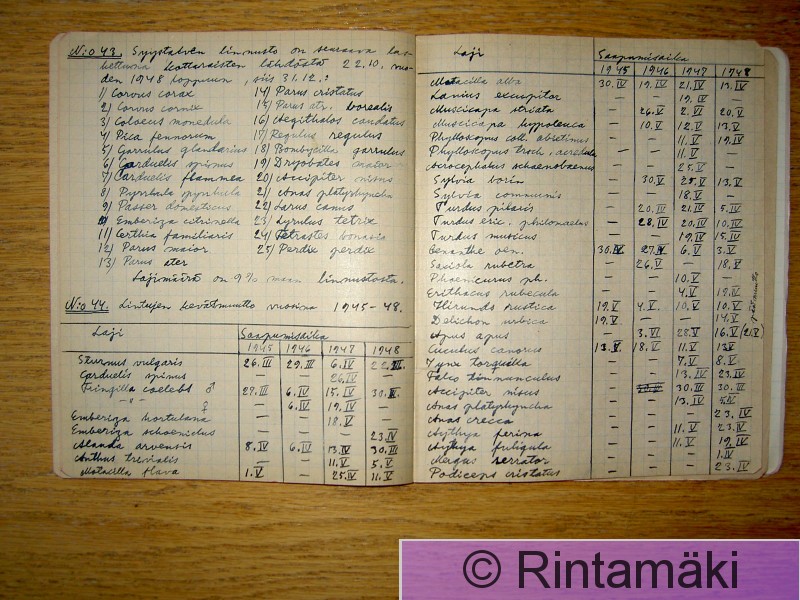 N:o 43. Syystalven linnusto on seuraava las-
kettuna kottaraisten lähdöstä 22.10. vuo-
den 1948 loppuun, siis 31.12.:
1) Corvus corax 14) Parus cristatus
2) Corvus cornix 15) Parus atr. borealis
3) Coloeus monedula 16) Aegithalos caudatus
4) Pica fennorum 17) Regulus regulus
5) Garrulus glandarius 18) Bombycilla garrulus
6) Carduelis spinus 19) Dryobates major
7) Carduelis flammea 20) Accipiter nisus
8) Pyrrhula pyrrhula 21) Anas platyrhyncha
9) Passer domesticus 22) Larus canus
10) Emberiza citrinella 23) Lyrulus tetrix
11) Certhia familiaris 24) Tetrastes bonasia
12) Parus maior 25) Perdix perdix
13) Parus ater
Lajimäärä on 9% maan linnustosta.
N:o 44. Lintujen kevätmuutto vuosina 1945-48.
Laji Saapumisaika
1945 1946 1947 1948
Sturnus vulgaris 26.III 29.III 6.IV 22.III.
Carduelis spinus — — 26.IV —
Fringilla coelebs ♂ 27.III 6.IV 15.IV 30.III.
-"- ♀ — 6.IV 19.IV —
Emberiza hortulana — — 18.V —
Emberiza schoeniclus — — — 23.IV
Alauda arvensis 8.IV 6.IV 13.IV 30.III
Anthus trivialis — — 11.V 5.V
Motacilla flava 1.V — 25.IV 11.V
Laji Saapumisaika
1945 1946 1947 1948
Motacilla alba 30.IV 19.IV 21.IV 13.IV
Lanius excubitor — — 19.IV —
Muscicapa striata — 26.V 2.V 20.V
Muscicapa hypoleuca — 10.V 12.V 13.V
Phylloscopus coll. abietinus — — 11.V 19.IV
Phylloscopus troch. acredula — — 11.V —
Acrocephalus schoenobaenus — — 25.V —
Sylvia borin — 30.V 25.V 13.V
Sylvia communis — — 18.V —
Turdus pilaris — 20.IV 21.IV 5.IV
Turdus eric. philomelus — 28.IV 20.IV 10.IV
Turdus musicus — — 19.IV 15.IV
Oenanthe oen. 30.IV 27.IV 6.V 3.V
Saxicola rubetra — 26.V — 18.V
Phoenicurus ph. — — 10.V —
Erithacus rubecula — — 4.V 19.IV
Hirundo rustica 19.V 4.V 10.V 10.V
Delichon urbica 19.V — — 14.V
Apus apus — 3.VI 28.V 16.V (21.V)
Cuculus canorus 13.V 18.V 11.V 13.V
Jynx torquilla — — 7.V 8.V
Falco tinnunculus — — 13.IV 23.IV
Accipiter nisus — 30.III 30.III
Anas platyrhyncha — — 13.IV 5.IV
Anas crecca — — — 23.IV
Aythya ferina — — 11.V 23.IV
Aythya fuligula — — 11.V 19.IV
Mergus serrator — — — 1.IV
Podiceps cristatus — — — 23.IV
© Rintamäki